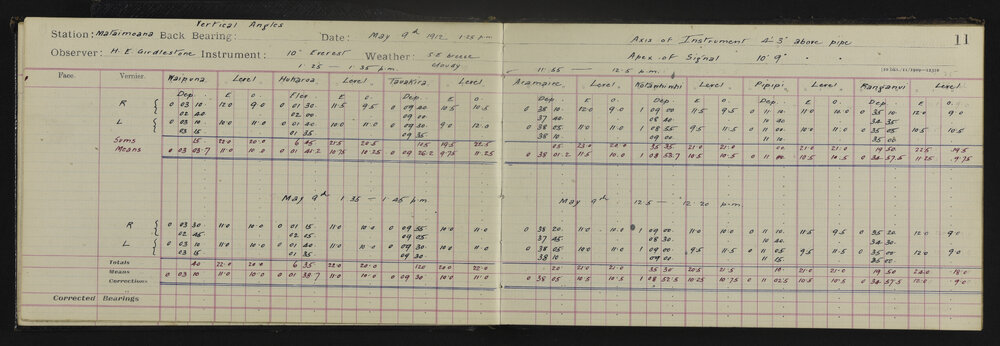 Vertical Angles
Station: Mataimoana Back Bearing: Date: May 9th 1912 1.25 p.m.
Axis of Instrument 4' 3" above pipe
11
Observer: H. E. Girdlestone Instrument: 10" Everest Weather: S.E. breeze cloudy
Apex of Signal 10' 9" " "
1.25 — 1.35 p.m.
11.55 — 12.5 p.m.
Face. Vernier. Waipuna Level Hokaroa Level Level
Level Level Pipipi Level Level
Dep. E O. Elev. E O. Dep. E O.
Dep. E O. Dep. E O. Dep. E O. Dep. E O.
R 0 03 10 12.0 9.0 0 01 30 11.5 9.5 0 09 40 10.5 10.5
0 38 10 12.0 9.0 1 09 00 11.5 9.5 0 11 10 11.0 10.0 0 35 10 12.0 9.0
02 40 02 00 09 00
37 40 08 40 10 40 34 35
L 0 03 10 10.0 11.0 0 01 40 10.0 11.0 0 09 30 9.0 12.0
0 38 05 11.0 11.0 1 08 55 9.5 11.5 0 11 00 10.0 11.0 0 35 05 10.5 10.5
03 15 01 35 09 35
38 10 09 00 11 10 35 00
Sums 15 22.0 20.0 6 45 21.5 20.5 105 19.5 22.5
05 23.0 20.0 35 35 21.0 21.0 00 21.0 21.0 19 50 22.5 19.5
Means 0 03 03.7 11.0 10.0 0 01 41.2 10.75 10.25 0 09 26.2 9.75 11.25
0 38 01.2 11.5 10.0 1 08 53.7 10.5 10.5 0 11 00 10.5 10.5 0 34 57.5 11.25 9.75
May 9th 1.35 — 1.45 p.m.
May 9th 12.5 — 12.20 p.m.
R 0 03 30 11.0 10.0 0 01 15 11.0 10.0 0 09 55 10.0 11.0
0 38 20 11.0 10.0 1 09 00 11.0 10.0 0 11 10 11.5 9.5 0 35 20 12.0 9.0
02 45 02 05 09 05
37 45 08 30 10 40 34 30
L 0 03 10 11.0 10.0 0 01 40 11.0 10.0 0 09 30 10.0 11.0
0 38 05 10.0 11.0 1 09 00 9.5 11.5 0 11 05 9.5 11.5 0 35 00 12.0 9.0
03 15 01 35 09 30
38 10 09 00 11 15 35 00
Totals 40 22.0 20.0 6 35 22.0 20.0 120 20.0 22.0
20 21.0 21.0 35 30 20.5 21.5 10 21.0 21.0 19 50 24.0 18.0
Means 0 03 10 11.0 10.0 0 01 38.7 11.0 10.0 0 09 30 10.0 11.0
0 38 05 10.5 10.5 1 08 52.5 10.25 10.75 0 11 02.5 10.5 10.5 0 34 57.5 12.0 9.0
Correction
Corrected Bearings